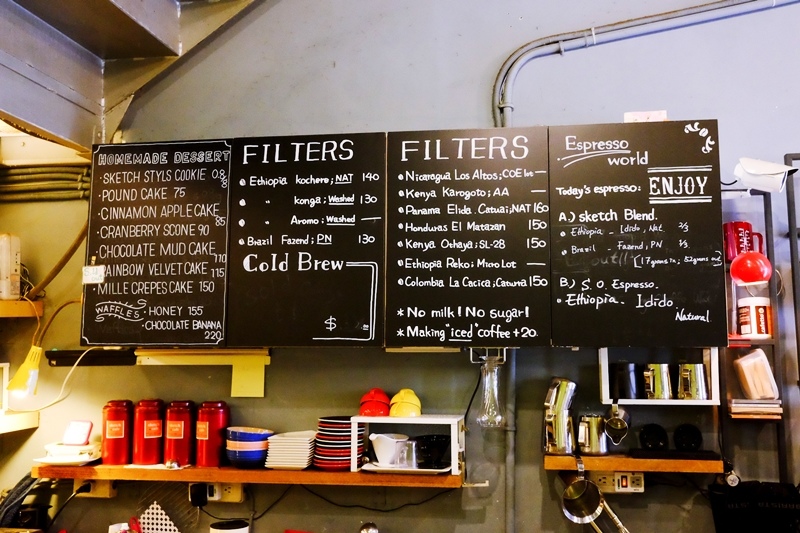 HOMEMADE DESSERT
· SKETCH STYLS COOKIE
· POUND CAKE 75
· CINNAMON APPLE CAKE 85
· CRANBERRY SCONE 90
· CHOCOLATE MUD CAKE 110
RAINBOW VELVET CAKE 115
· MILLE CREPES CAKE 150
WAFFLES · HONEY 155
· CHOCOLATE BANANA 220
FILTERS
Ethiopia kochere; NAT 140
" konga; Washed 130
" Aromo; Washed —
Brazil Fazend; PN 130
Cold Brew
$
FILTERS
Nicaragua Los Altos; COE —
Kenya Karogoto; AA —
Panama Elida. Catuai; NAT 160
Honduras El Matazan 150
Kenya Othaya; SL-28 150
Ethiopia Reko; Micro Lot —
Colombia La Cacica; Caturra 150
* No milk! No sugar!
* Making "iced" coffee +20.
Espresso
world
Today's espresso: ENJOY
A.) sketch Blend.
· Ethiopia - Idido, Nat 2/3
· Brazil - Fazend, PN 1/3
B.) S. O. Espresso.
· Ethiopia. Idido.
Natural.